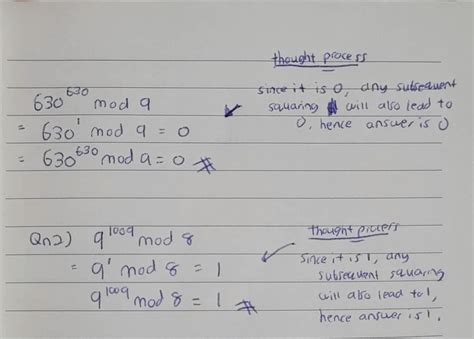 thought process
since it is 0, any subsequent
squaring will also lead to
0, hence answer is 0
630^630 mod 9
= 630^1 mod 9 = 0
= 630^630 mod 9 = 0 #
Qn2) 9^1009 mod 8
= 9^1 mod 8 = 1
9^1009 mod 8 = 1 #
thought process
Since it is 1, any
subsequent squaring
will also lead to 1,
hence answer is 1.